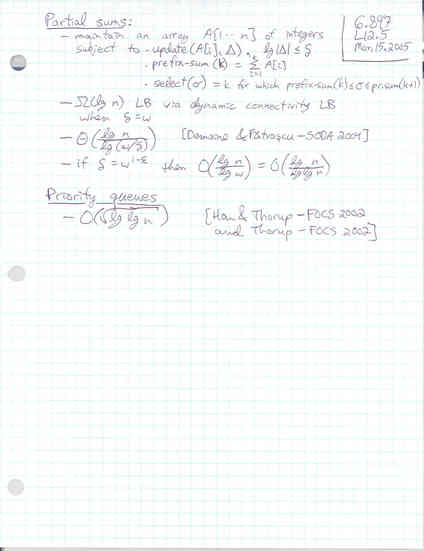 Partial sums:
6.897
L12.5
Mon. 15, 2005
– maintain an array A[1 ⋯ n] of integers
subject to · update(A[i], Δ), lg|Δ| ≤ δ
· prefix-sum(k) = Σ_{i=1}^{k} A[i]
· select(σ) = k for which prefix-sum(k) ≤ σ ≤ pr.sum(k+1)
– Ω(lg n) LB via dynamic connectivity LB
when δ = w
– Θ(lg n / lg(w/δ)) [Demaine & Pătraşcu – SODA 2004]
– if δ = w^{1-ε} then O(lg n / lg w) = O(lg n / lg lg n)
Priority queues
– O(√lg lg n) [Han & Thorup – FOCS 2002
and Thorup – FOCS 2002]